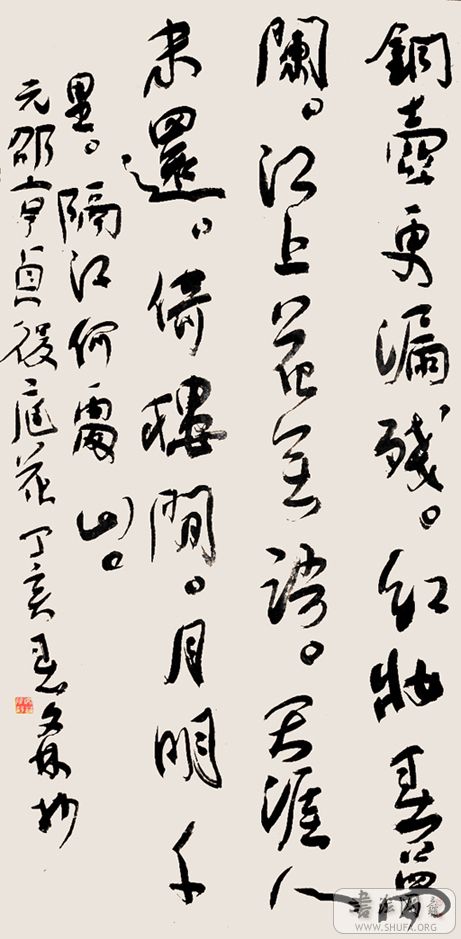 銅壺更漏殘。红妝春夢
闌。江上花无語。天涯人
未還。倚樓間。月明千
里。隔江何處山。
元邵亨貞後庭花 丁亥春文 抄
WWW.SHUFA.ORG